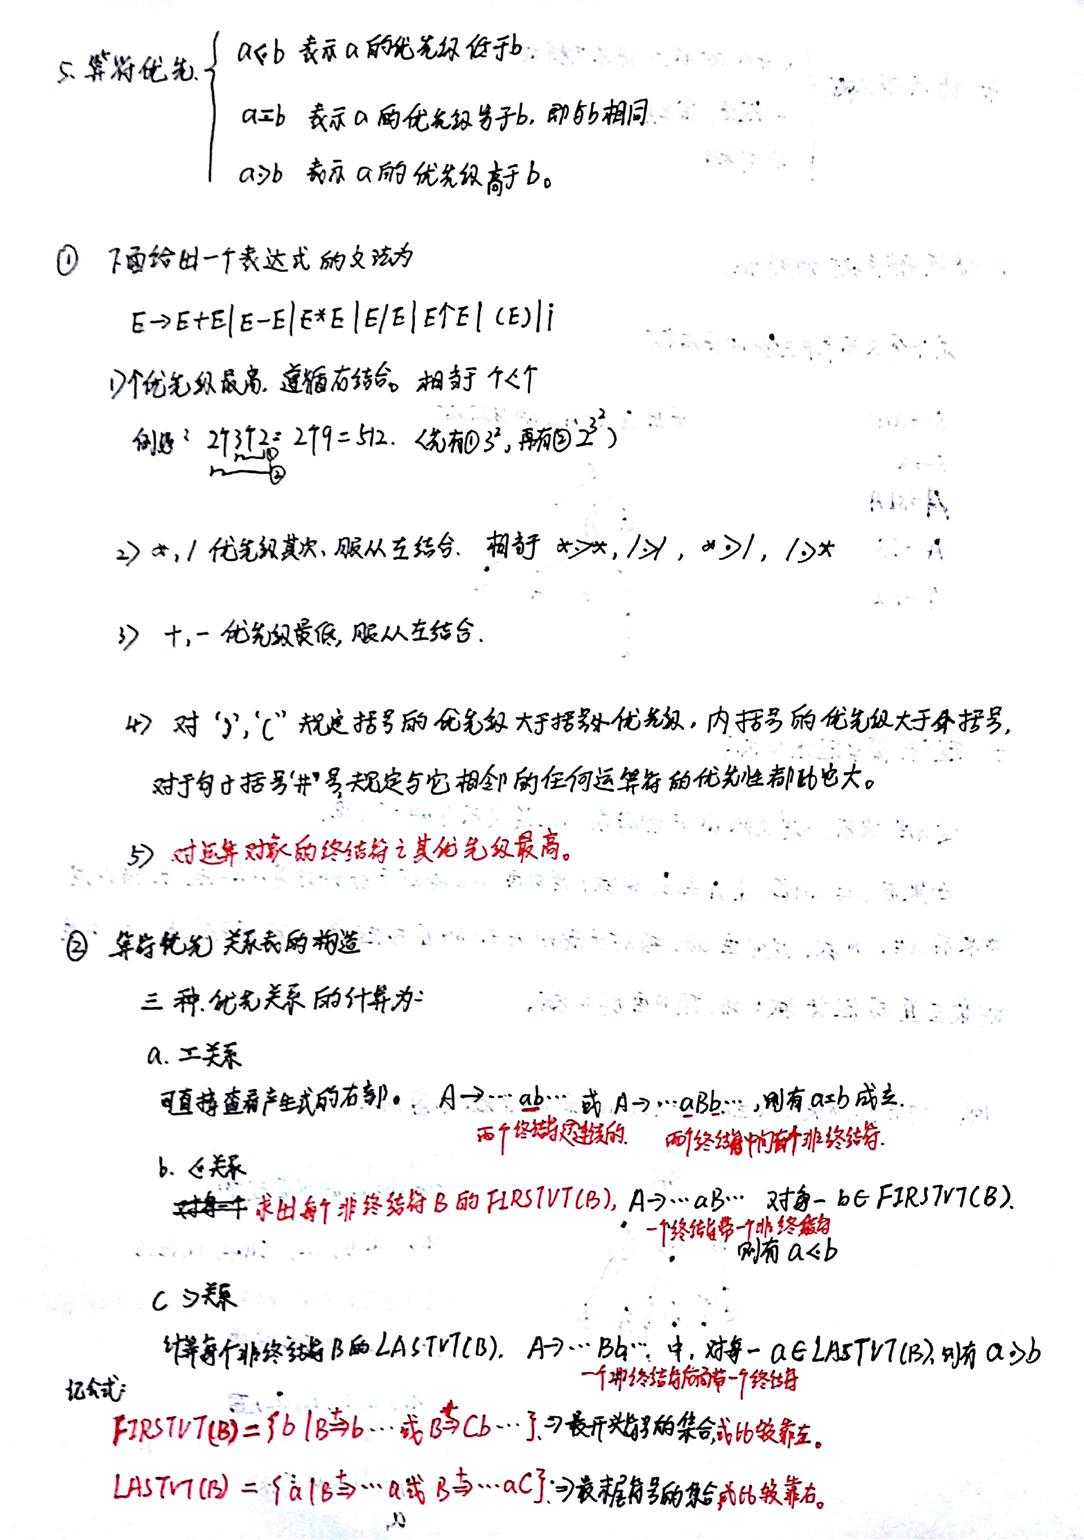 5. 算符优先 { a⋖b 表示a的优先级低于b.
a≖b 表示a的优先级等于b, 即与b相同
a⋗b 表示a的优先级高于b。
① 下面给出一个表达式的文法为
E→E+E|E-E|E*E|E/E|E↑E|(E)|i
1) ↑优先级最高, 遵循右结合。相当于 ↑⋖↑
例如: 2↑3↑2=2↑9=512. (先有①3², 再有②2^3^2)
① ②
2) *, / 优先级其次, 服从左结合. 相当于 *⋗*, /⋗/, *⋗/, /⋗*
3) +, - 优先级最低, 服从左结合.
4) 对 ')', '(' 规定括号的优先级大于括号外优先级, 内括号的优先级大于外括号,
对于句子括号'#'号规定与它相邻的任何运算符的优先性都比它大。
5) 对运算对象的终结符i其优先级最高。
② 算符优先关系表的构造
三种优先关系的计算为:
a. ≖关系
可直接查看产生式的右部。 A→…ab… 或 A→…aBb…, 则有a≖b成立.
两个终结符是连续的. 两个终结符中间有个非终结符.
b. ⋖关系
求出每个非终结符B的FIRSTVT(B), A→…aB… 对每一 b∈FIRSTVT(B).
一个终结符带一个非终结符
则有 a⋖b
c ⋗关系
计算每个非终结符B的LASTVT(B). A→…Bb… 中, 对每一 a∈LASTVT(B), 则有 a⋗b
一个非终结符后面带一个终结符
记公式:
FIRSTVT(B)={b|B⇒⁺b…或B⇒⁺Cb…}.⇒最开头符号的集合,或比较靠左。
LASTVT(B)={a|B⇒⁺…a或B⇒⁺…aC}.⇒最末尾符号的集合,或比较靠右。